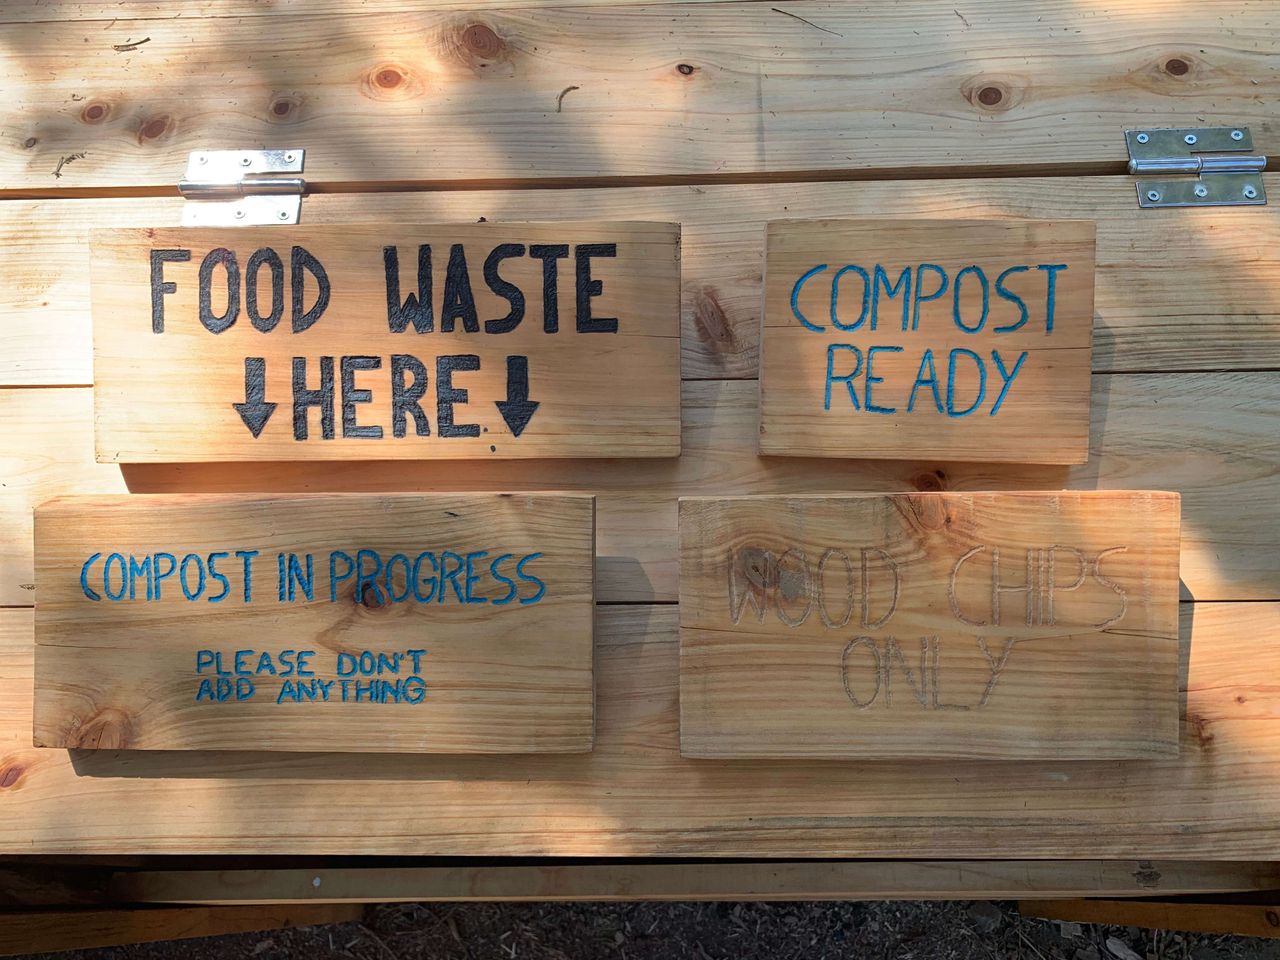 FOOD WASTE
↓HERE↓
COMPOST
READY
COMPOST IN PROGRESS
PLEASE DON'T
ADD ANYTHING
WOOD CHIPS
ONLY